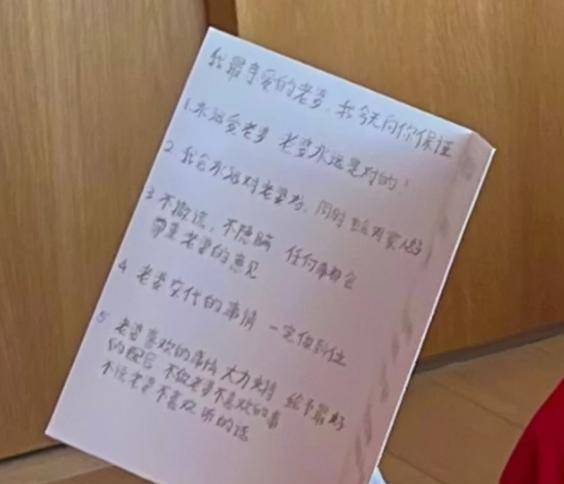 我最亲爱的老婆,我今天向你保证
1.永远爱老婆 老婆永远是对的!
2 我会永远对老婆好,同时 对家人好
3 不撒谎,不隐瞒 任何事都会
尊重老婆的意见
4 老婆交代的事情 一定做到位
5 老婆喜欢的事情 大力支持 给予最好
的配合 不做老婆不喜欢的事
不说老婆不喜欢听的话